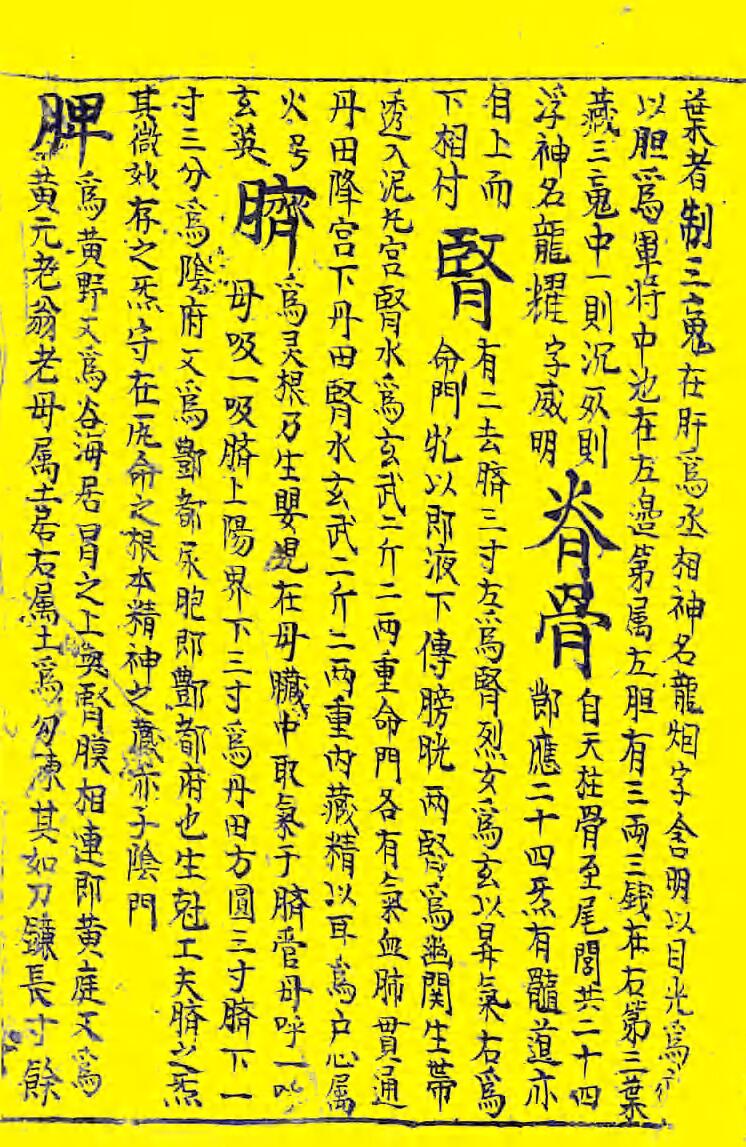 葉者制三魂在肝爲丞相神名龍烟字含明以目光爲
以胆爲軍將中池在左邊第属左胆有三兩三銭在右第三葉
藏三魂中一則沉一则
浮神名龍耀字威明
脊骨
自天柱骨至尾閭共二十四
節應二十四炁有髓道亦
自上而
下相付
腎
有二去臍三寸左爲腎烈女爲玄以昇氣右爲
命門牝以即液下傳膀胱兩腎爲幽関生帶
透入泥丸宮腎水爲玄武二斤二兩重命門各有氣血肺貫通
丹田降宮下丹田腎水玄武二斤二兩重内藏精以耳爲户心属
火号
玄英
臍
爲灵根乃生嬰児在母臟中取氣于臍管母呼一呼
母吸一吸臍上陽界下三寸爲丹田方圓三寸臍下一
寸三分爲陰府又爲酆都尿胞即酆都府也生尅工夫臍之炁
其微妙存之炁守在一炁命之根本精神之藏亦子陰門
脾
爲黄野又爲谷海居胃之上與腎膜相連即黄庭又爲
黄元老翁老母属土居右属土爲勾陳其如刀鐮長寸餘